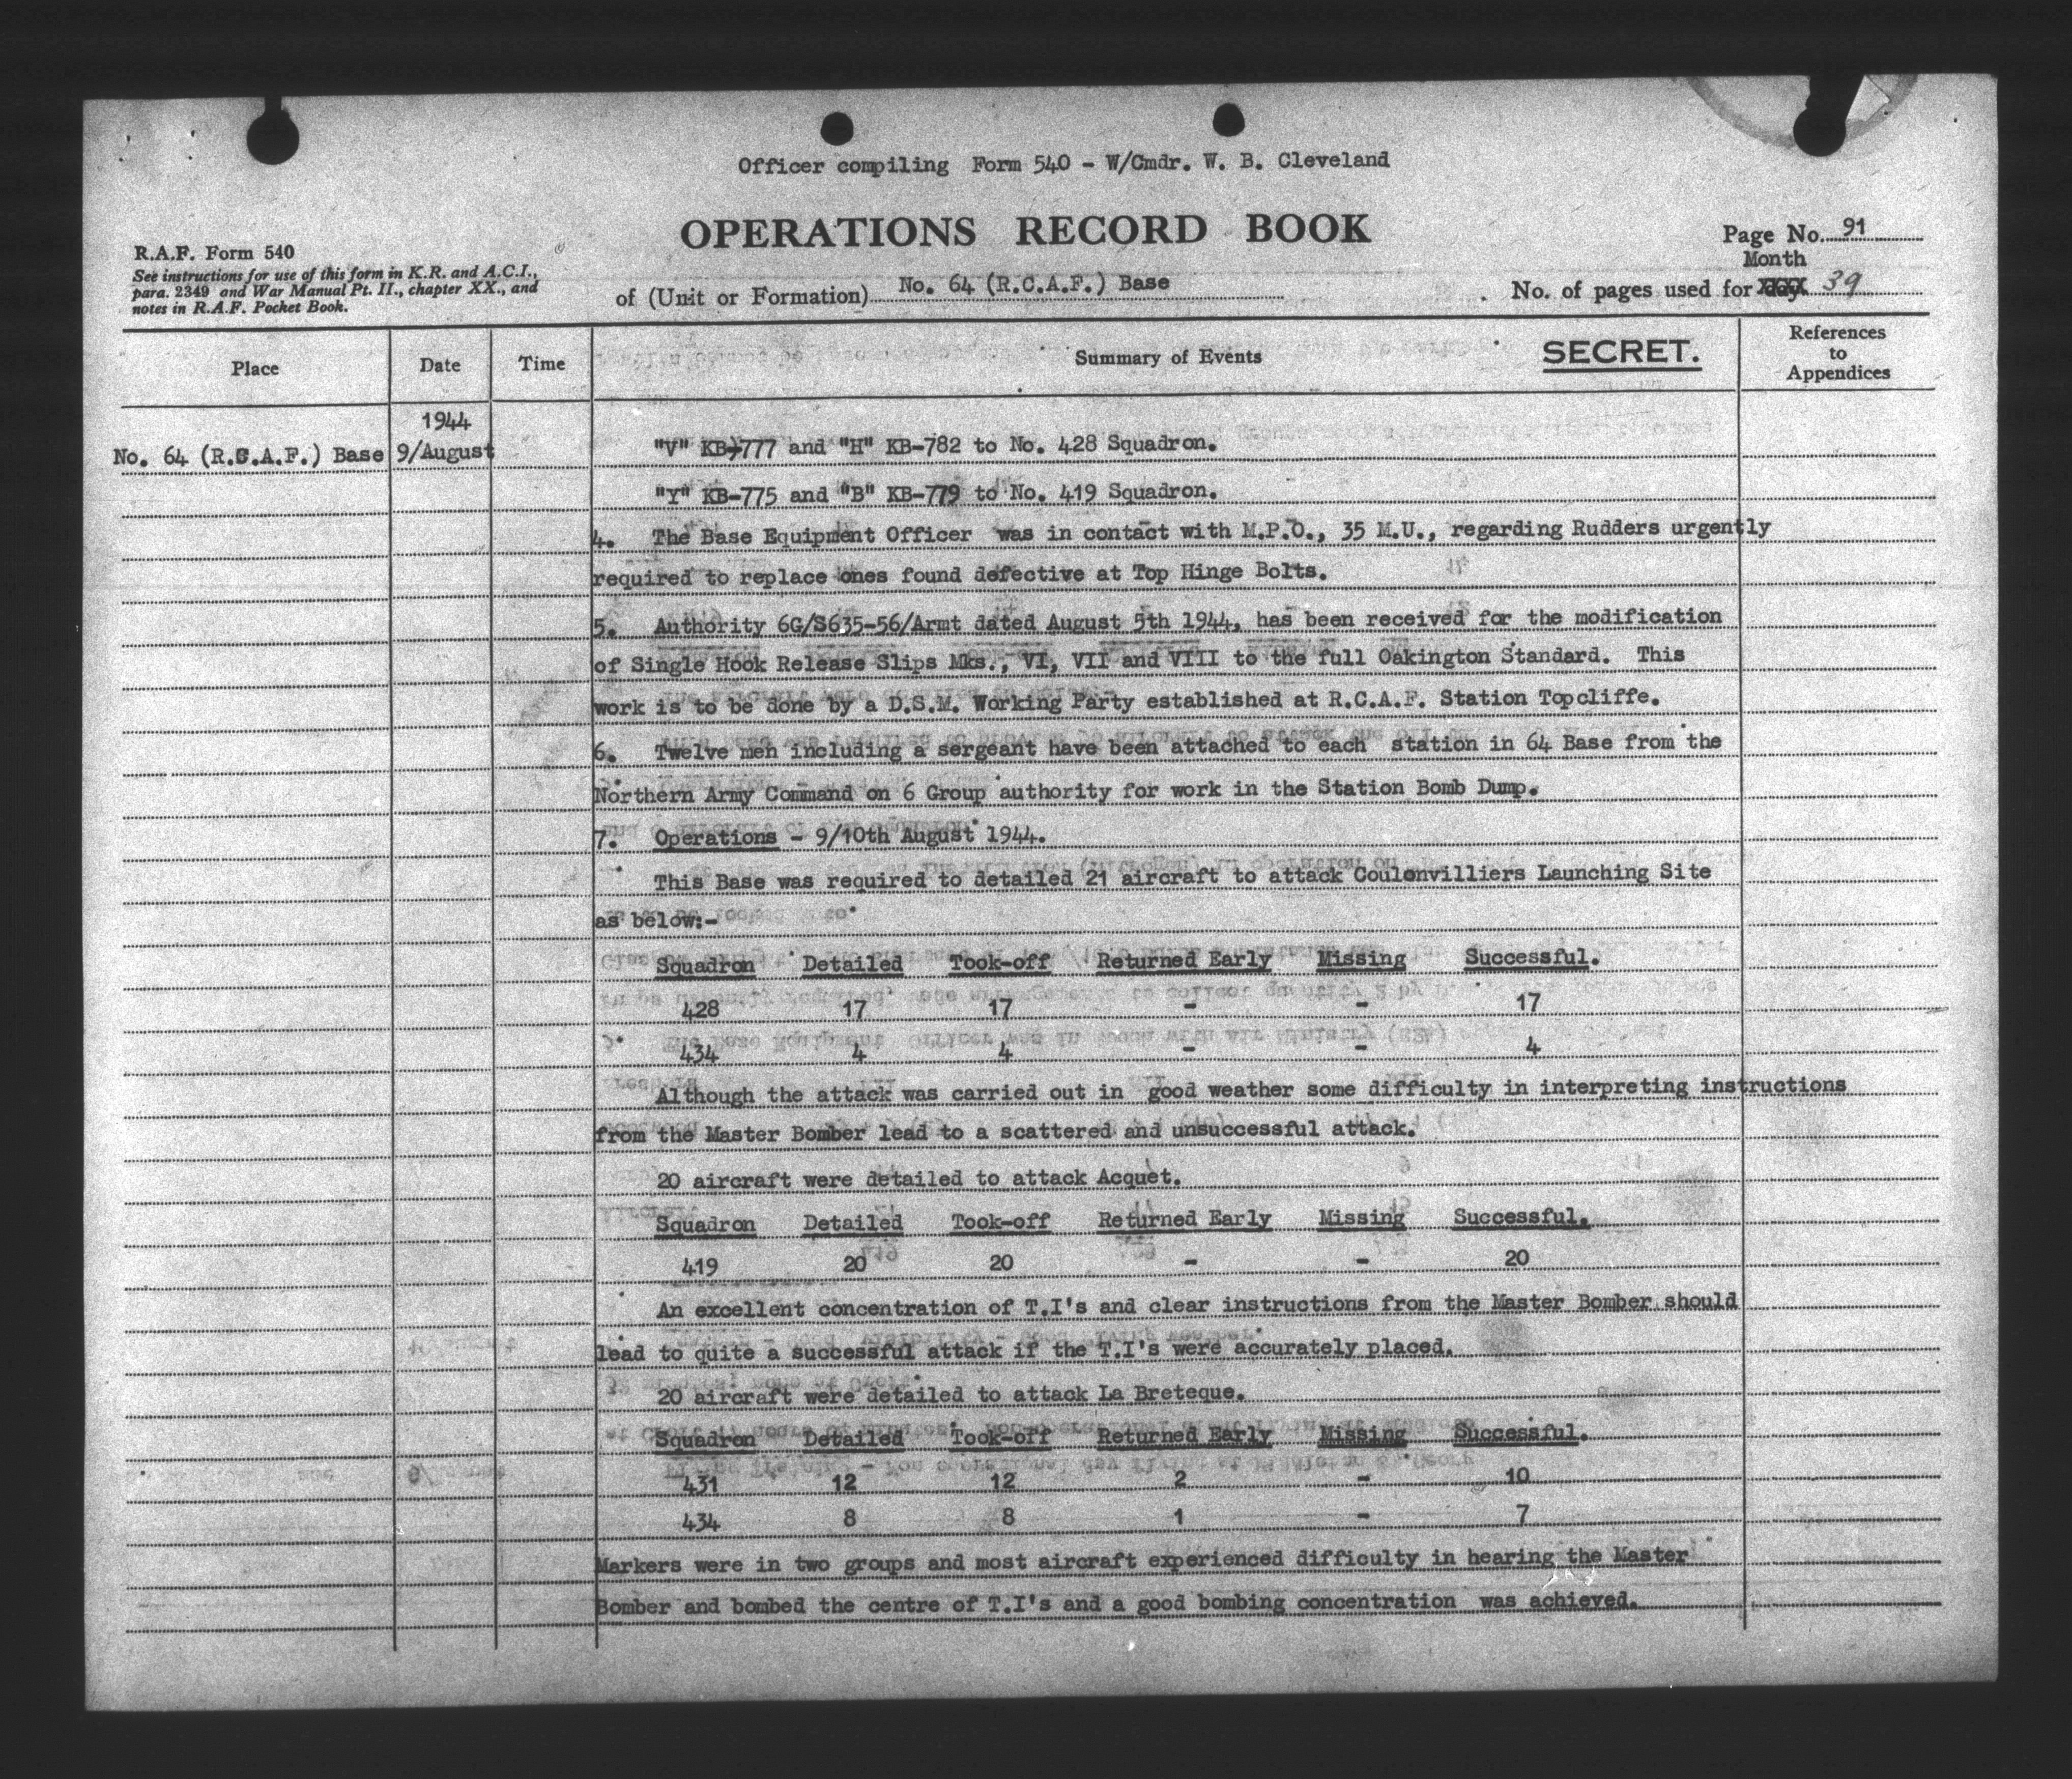 Officer compiling Form 540 - W/Cmdr. W. B. Cleveland
OPERATIONS RECORD BOOK
Page No. 91
Month
R.A.F. Form 540
See instructions for use of this form in K.R. and A.C.I.,
para. 2349 and War Manual Pt. II., chapter XX., and
notes in R.A.F. Pocket Book.
of (Unit or Formation) No. 64 (R.C.A.F.) Base
No. of pages used for day 39
Place Date Time Summary of Events SECRET. References to Appendices
1944
No. 64 (R.C.A.F.) Base 9/August "V" KB-777 and "H" KB-782 to No. 428 Squadron.
"Y" KB-775 and "B" KB-779 to No. 419 Squadron.
4. The Base Equipment Officer was in contact with M.P.O., 35 M.U., regarding Rudders urgently
required to replace ones found defective at Top Hinge Bolts.
5. Authority 6G/S635-56/Armt dated August 5th 1944, has been received for the modification
of Single Hook Release Slips Mks., VI, VII and VIII to the full Oakington Standard. This
work is to be done by a D.S.M. Working Party established at R.C.A.F. Station Topcliffe.
6. Twelve men including a sergeant have been attached to each station in 64 Base from the
Northern Army Command on 6 Group authority for work in the Station Bomb Dump.
7. Operations - 9/10th August 1944.
This Base was required to detailed 21 aircraft to attack Coulonvilliers Launching Site
as below:-
Squadron Detailed Took-off Returned Early Missing Successful.
428 17 17 - - 17
434 4 4 - - 4
Although the attack was carried out in good weather some difficulty in interpreting instructions
from the Master Bomber lead to a scattered and unsuccessful attack.
20 aircraft were detailed to attack Acquet.
Squadron Detailed Took-off Returned Early Missing Successful.
419 20 20 - - 20
An excellent concentration of T.I's and clear instructions from the Master Bomber should
lead to quite a successful attack if the T.I's were accurately placed.
20 aircraft were detailed to attack La Breteque.
Squadron Detailed Took-off Returned Early Missing Successful.
431 12 12 2 - 10
434 8 8 1 - 7
Markers were in two groups and most aircraft experienced difficulty in hearing the Master
Bomber and bombed the centre of T.I's and a good bombing concentration was achieved.